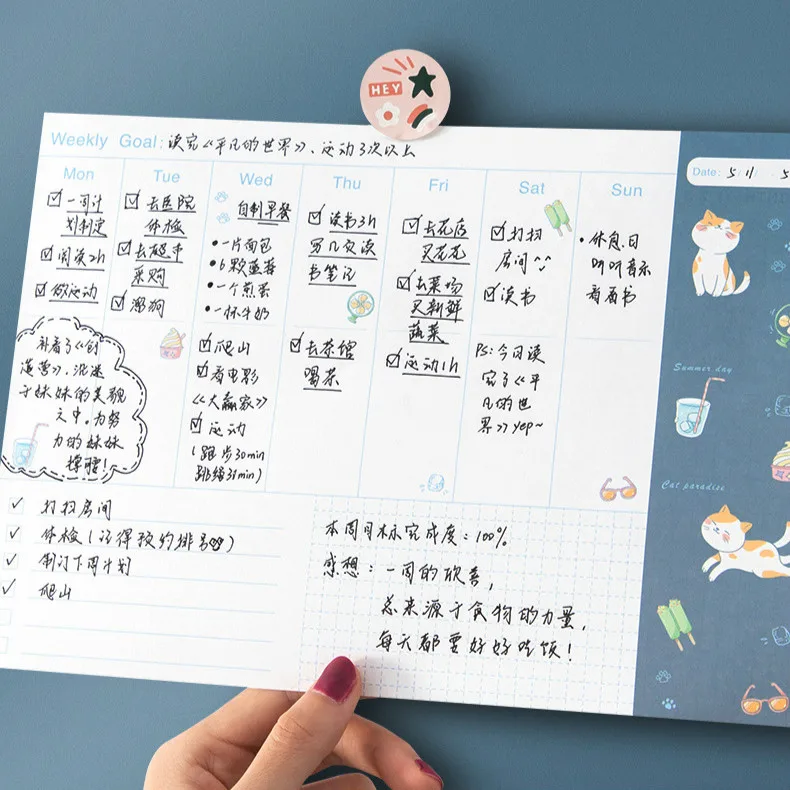 HEY
Weekly Goal: 读完《平凡的世界》、运动3次以上
Date: 5/1/
Mon
☑一周计
划制定
☑阅读2h
☑做运动
补看了《创
造营》,沉迷
于妹妹的美貌
之中。为努
力的妹妹
撑腰!
Tue
☑去医院
体检
☑去超市
采购
☑遛狗
Wed
自制早餐
•一片面包
•6颗蓝莓
•一个煎蛋
•一杯牛奶
☑爬山
☑看电影
《大赢家》
☑运动
(跑步30min
跳绳31min)
Thu
☑读书3h
写几文读
书笔记
☑去茶馆
喝茶
Fri
☑去花店
买花花
☑去菜场
买新鲜
蔬菜
☑运动1h
Sat
☑打扫
房间
☑读书
PS:今日读
完了《平
凡的世
界》yep~
Sun
•休息日
听听音乐
看看书
✓打扫房间
✓体检(记得预约排号)
✓制订下周计划
✓爬山
本周目标完成度:100%
感想:一周的欣喜,
总来源于食物的力量,
每天都要好好吃饭!
Summer day
Cat paradise